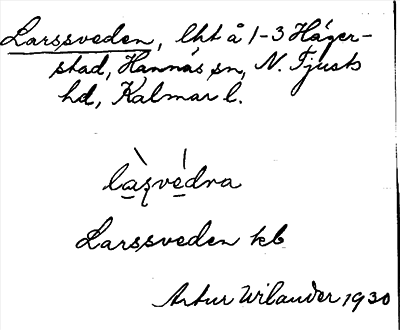 Larssveden, lht å 1-3 Häger-
stad, Hannäs sn, N. Tjusts
hd, Kalmar l.
làşvédna
Larssveden kb
Artur Wilander 1930